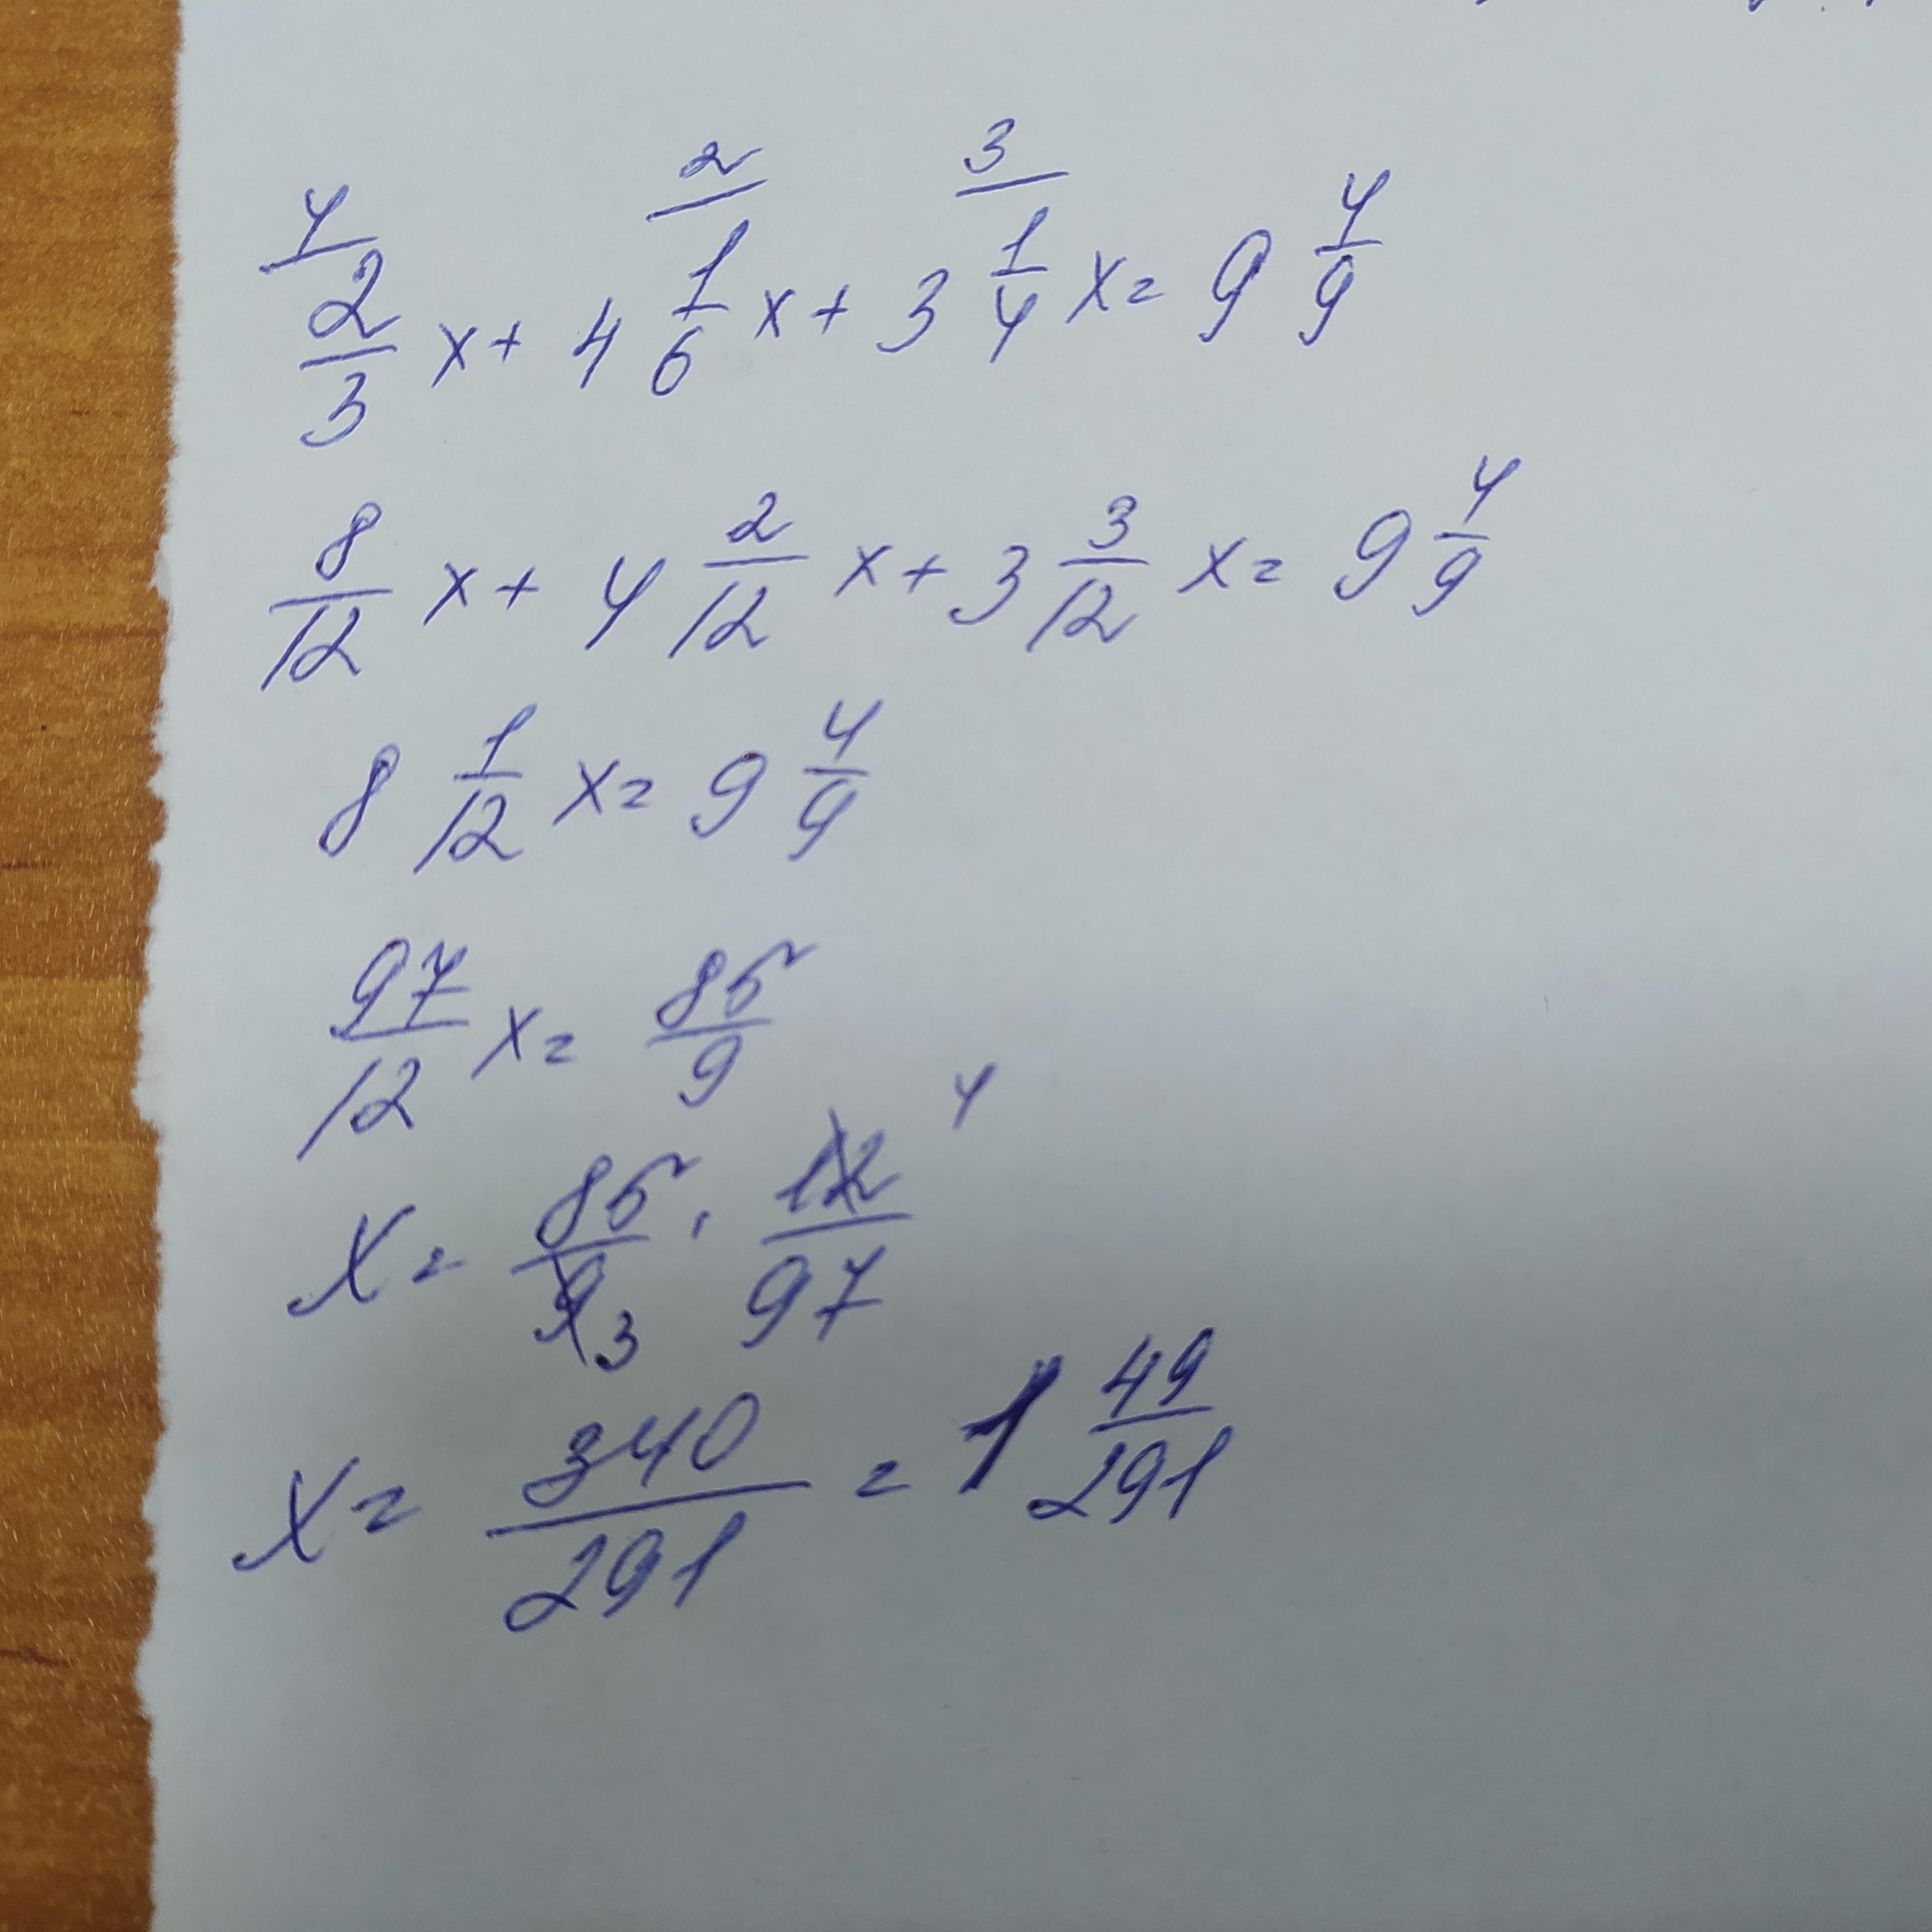 4/ 2/3 x + 4 2/ 1/6 x + 3 3/ 1/4 x = 9 4/9
8/12 x + 4 2/12 x + 3 3/12 x = 9 4/9
8 1/12 x = 9 4/9
97/12 x = 85/9
x = 85/9 3 · 12/97 4
x = 340/291 = 1 49/291